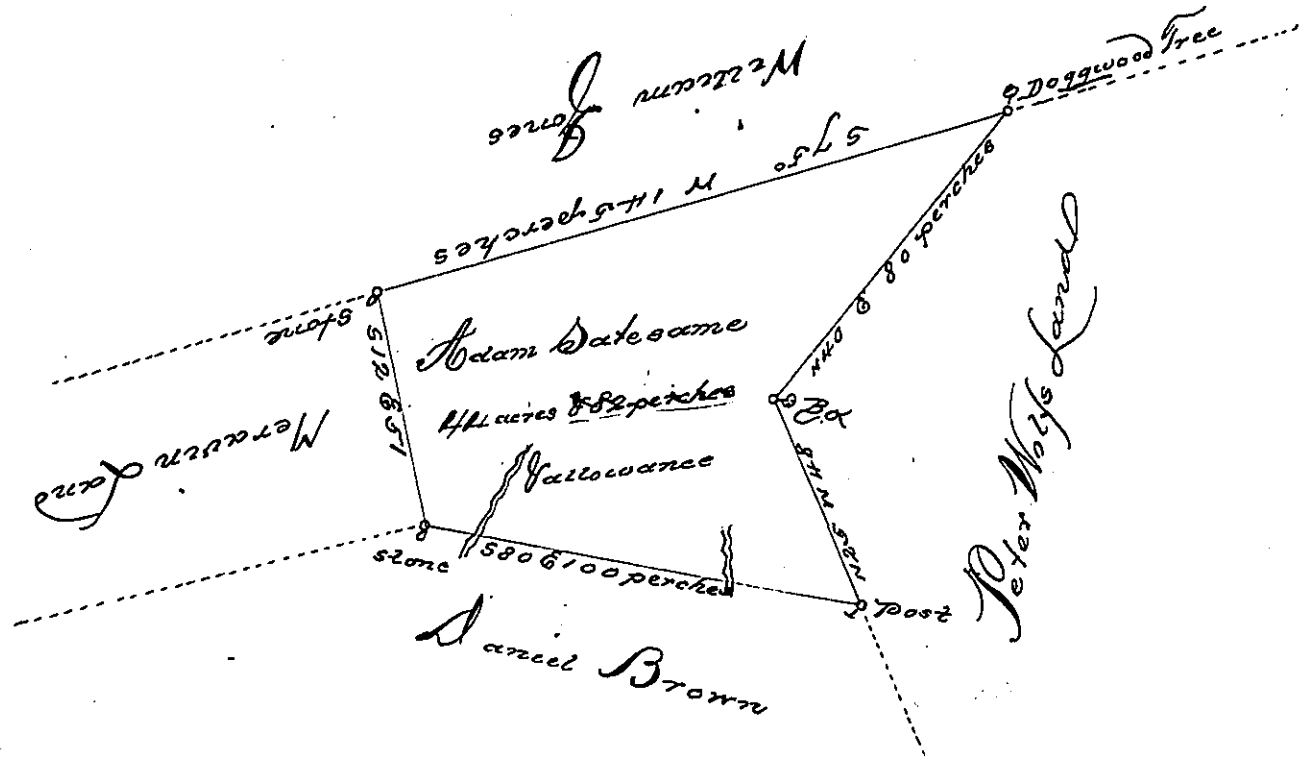 William
Jones
Doggwood Tree
S 75°
W 145 perches
N40 E 80 perches
stone
S12 E 51
Adam Satesame
44 acres & 82 perches
& allowance
B.O
N25 W 48
Land
Peter Wolfs Land
stone
S80 E 100 perches
Post
Daniel Brown